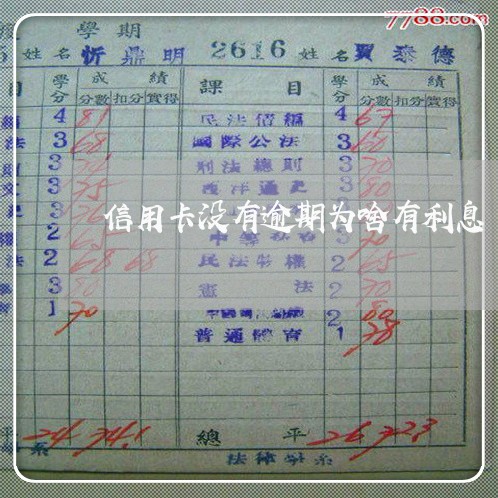 7788.com
學期
姓名 忻鼎明 2616 姓名 賈泰德
目 學分 成績 課目 學分 成績
分數 扣分 實得 分數 扣分 實得
4 81 民法債編 4 67
法 3 68 國際公法 3 60
3 刑法總則 3 70
3 75 西洋通史 3 80
3
信用卡没有逾期为啥有利息
2 65 3 70
法 2 68 68 民法物權 2 65
3 80 憲法 2 70
1 70 2 80
普通體育 1 78
平 24 74.1 總平 26 72.3
系 法律學系